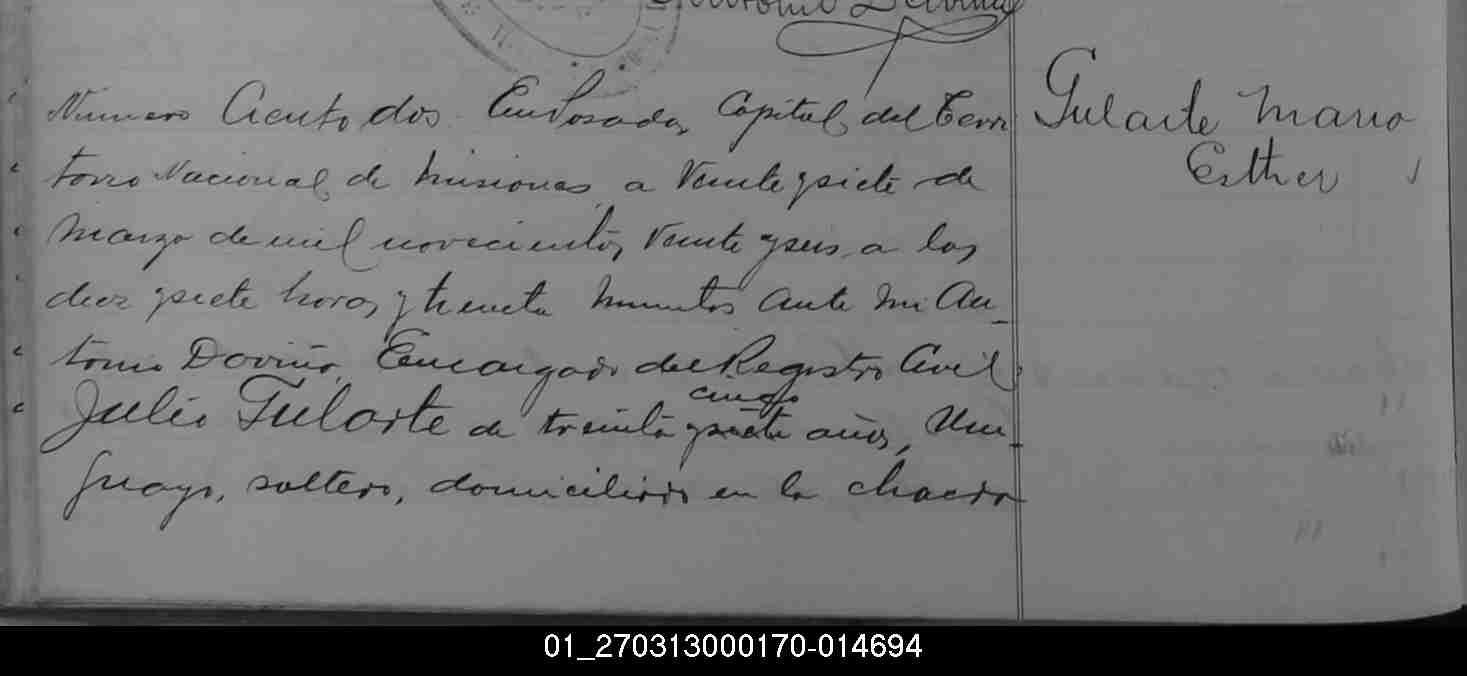 Número Ciento dos. En Posadas, Capital del Terri
torio Nacional de Misiones, a Veinte y siete de
Marzo de mil novecientos Veinte y seis, a las
diez y siete horas y treinta minutos ante mi An_
tonio Doviña, Encargado del Registro Civil
cinco
Julio Gularte de treinta y siete años, Uru_
guayo, soltero, domiciliado en la chacra
Gularte Maria
Esther
01_270313000170-014694